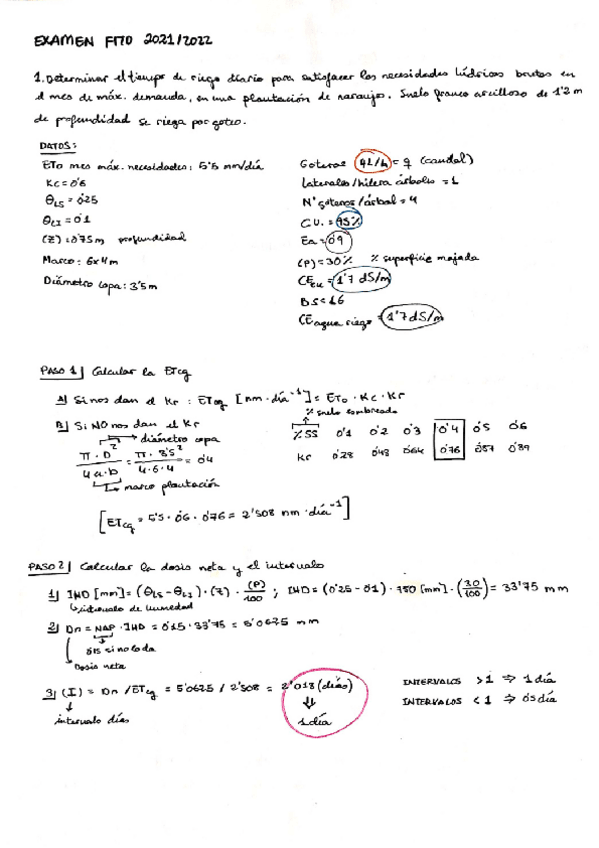 EXAMEN FITO 2021/2022
1. Determinar el tiempo de riego diario para satisfacer las necesidades hídricas brutas en
el mes de máx. demanda, en una plantación de naranjos. Suelo franco arcilloso de 1'2 m
de profundidad se riega por goteo.
DATOS:
ETo mes máx. necesidades: 5'5 mm/día
Kc = 0'6
θLS = 0'25
θLI = 0'1
(Z) = 0'75m profundidad
Marco: 6x4m
Diámetro copa: 3'5m
Goteros 4L/h = q (caudal)
Laterales/hilera árboles = 1
Nº goteros/árbol = 4
C.U. = 95%
Ea = 0'9
(P) = 30% % superficie mojada
= 1'7 dS/m
CE agua riego = 1'7 dS/m
PASO 1 Calcular la ETcg
A) Si nos dan el Kr : ETcg [mm·día⁻¹] = ETo · Kc · Kr
B) Si NO nos dan el Kr
diámetro copa
π·D² / 4·a·b = π·3'5² / 4·6·4 = 0'4
marco plantación
% suelo sombreado
%SS 0'1 0'2 0'3 0'4 0'5 0'6
Kr 0'28 0'48 0'64 0'76 0'87 0'89
[ETcg = 5'5 · 0'6 · 0'76 = 2'508 mm·día⁻¹]
PASO 2 Calcular la dosis neta y el intervalo
1) IHD [mm] = (θLS - θLI) · (Z) · (P)/100 ; IHD = (0'25 - 0'1) · 750 [mm] · (30/100) = 33'75 mm
intervalo de humedad
2) Dn = NAP · IHD = 0'15 · 33'75 = 5'0625 mm
0'15 si no lo da
Dosis neta
3) (I) = Dn / ETcg = 5'0625 / 2'508 = 2'018 (días)
intervalo días
1 día
INTERVALOS > 1 ⇒ 1 día
INTERVALOS < 1 ⇒ 0'5 día